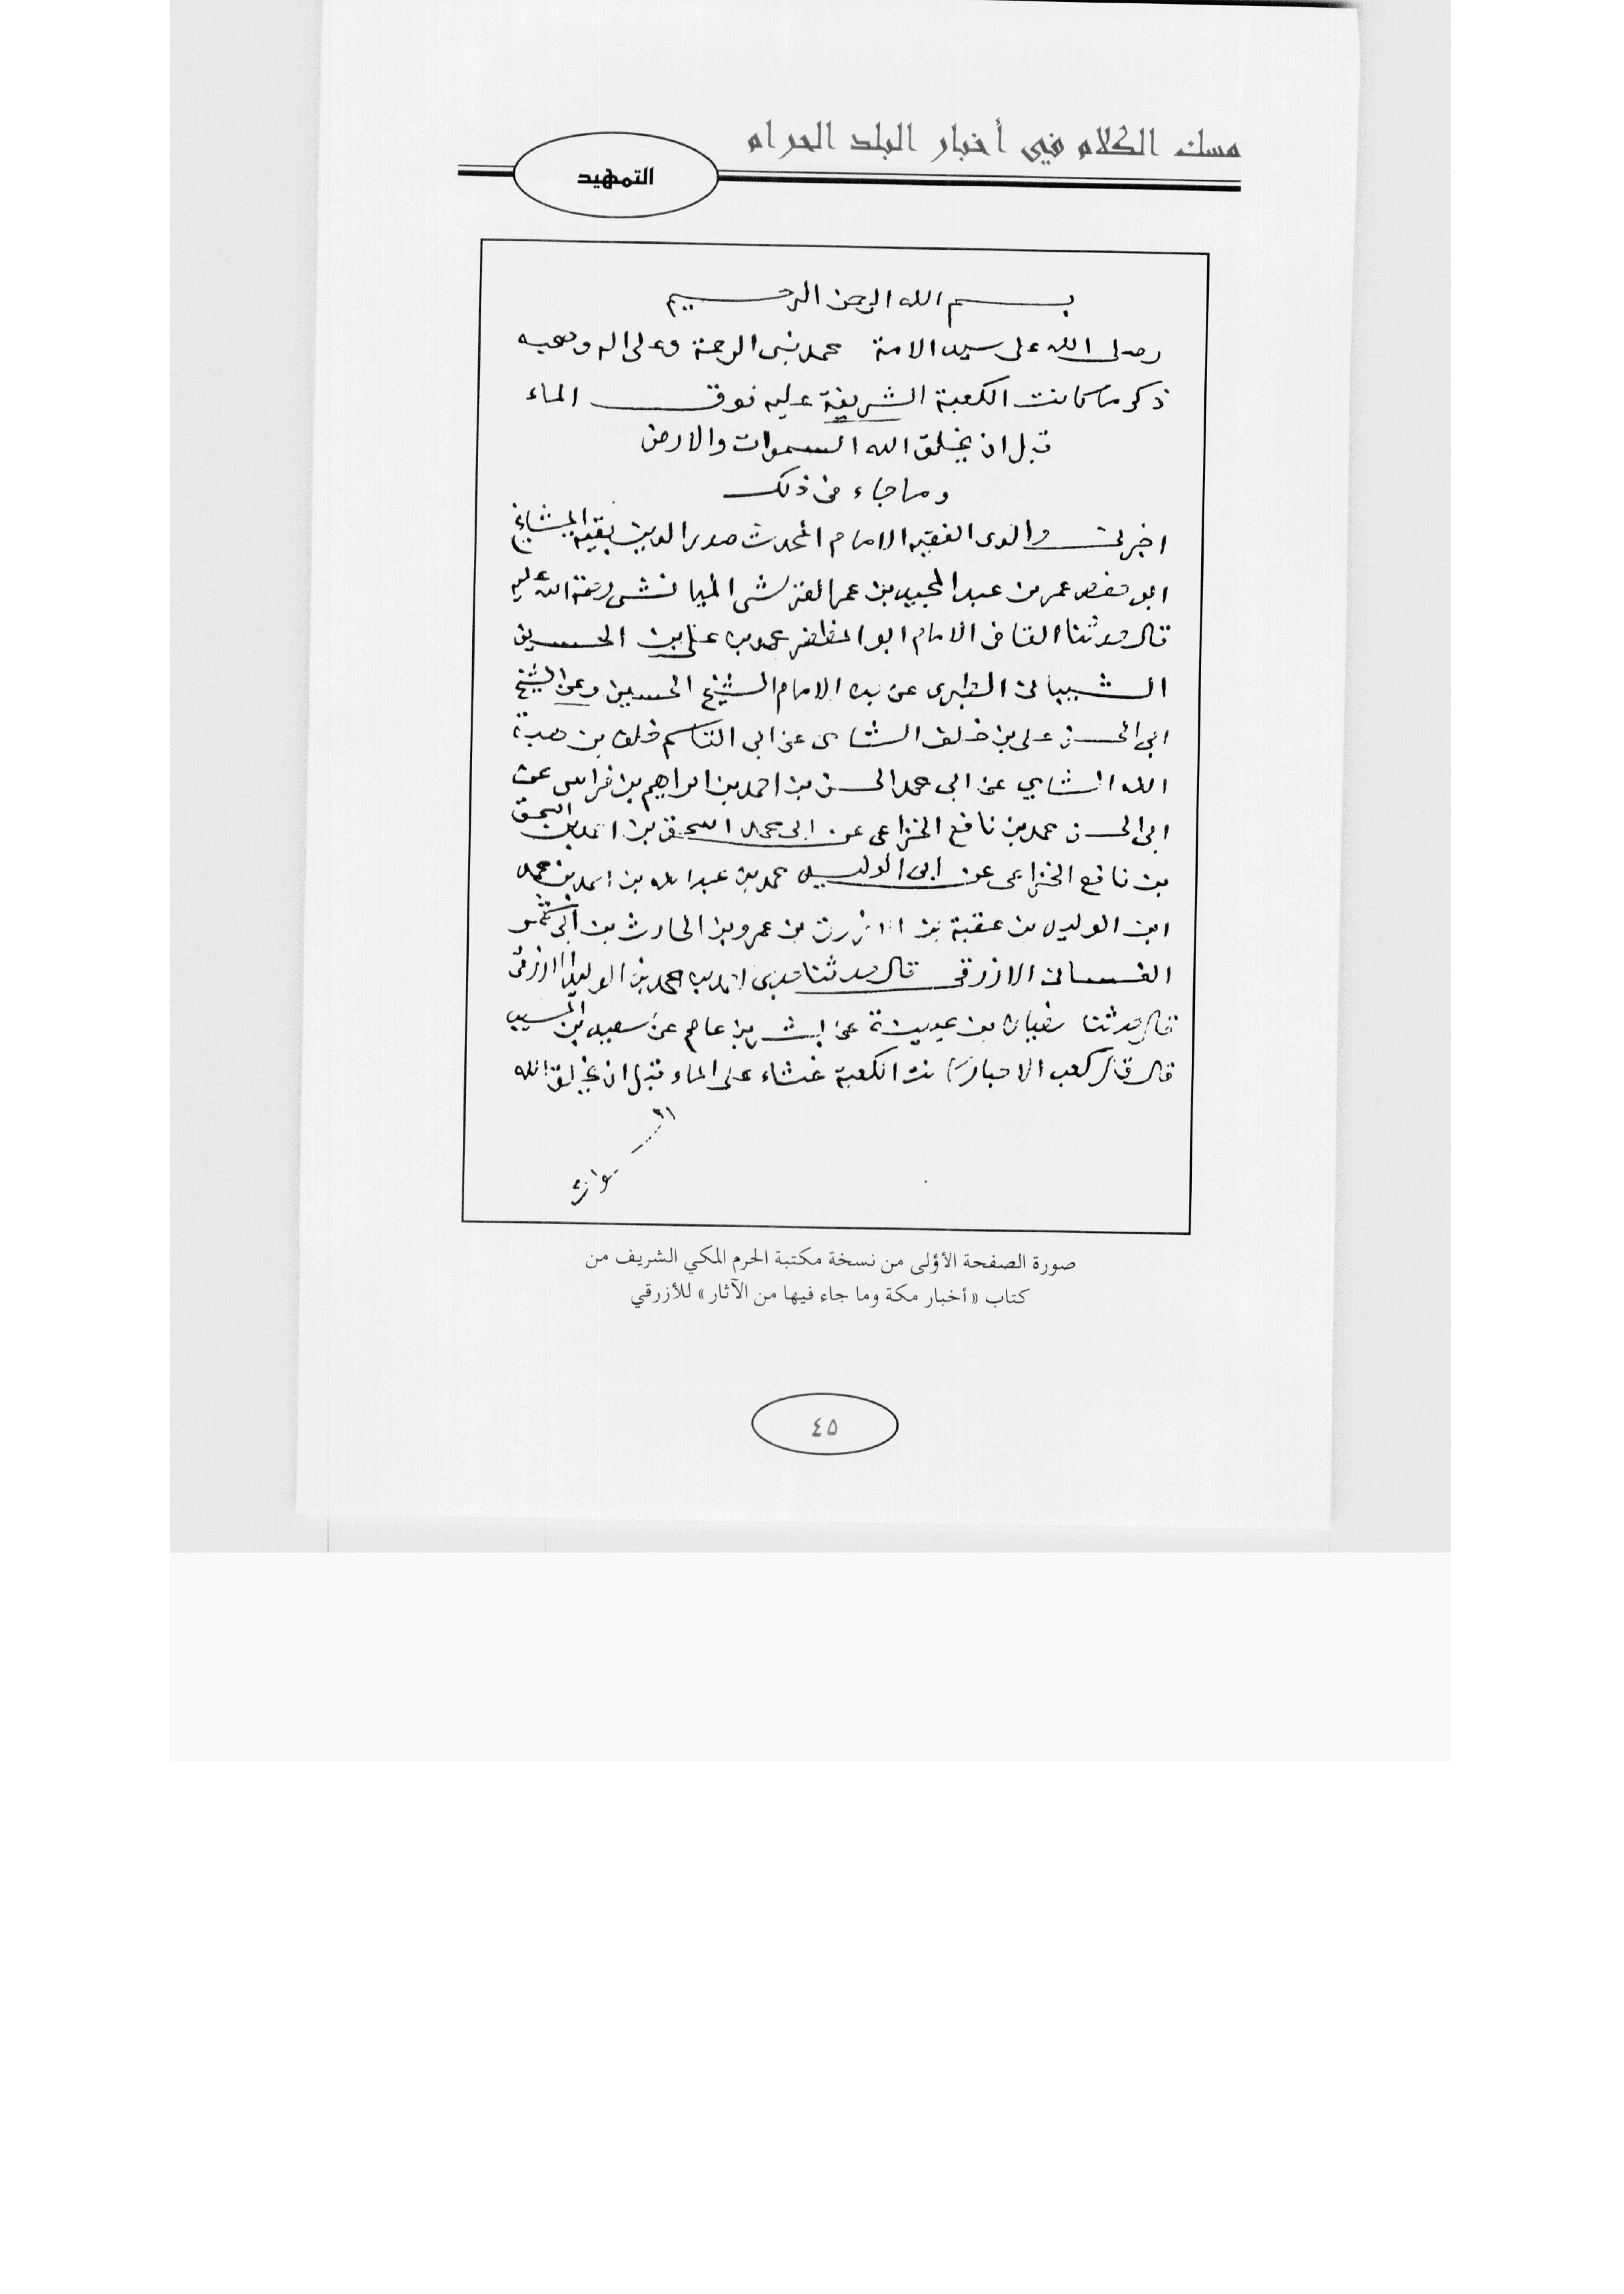 مسك الكلام في أخبار البلد الحرام
التمهيد
بسم الله الرحمن الرحيم
وصلى الله على سيد الامة محمد نبى الرحمة وعلى اله وصحبه
ذكر ما كانت الكعبة الشريفة عليه فوق الماء
قبل ان يخلق الله السموات والارض
وما جاء فى ذلك
اخبرنى والدى الفقيه الامام المحدث صدر الدين بقية المشايخ
ابو حفص عمر بن عبد المجيد بن عمر القرشى الميانشى رحمة الله عليه
قال حدثنا القاضى الامام ابو المظفر محمد بن على بن الحسين
الشيبانى الطبرى عن جده الامام الشيخ الحسين وعن الشيخ
ابى الحسن على بن خلف الشامى عن ابى القاسم خلف بن هبة
الله الشامي عن ابى محمد الحسن بن احمد بن ابراهيم بن فراس عن
ابى الحسن محمد بن نافع الخزاعى عن ابى محمد اسحق بن احمد بن اسحق
بن نافع الخزاعى عن ابى الوليد محمد بن عبد الله بن احمد بن محمد
ابن الوليد بن عقبة بن الازرق بن عمرو بن الحارث بن ابى شمر
الغسانى الازرقى قال حدثنا جدى احمد بن محمد بن الوليد الازرقى
قال حدثنا سفيان بن عيينة عن بشر بن عاصم عن سعيد بن المسيب
قال قال كعب الاحبار كانت الكعبة غثاء على الماء قبل ان يخلق الله
صورة الصفحة الأؤلى من نسخة مكتبة الحرم المكي الشريف من
كتاب «أخبار مكة وما جاء فيها من الآثار» للأزرقي
٤٥